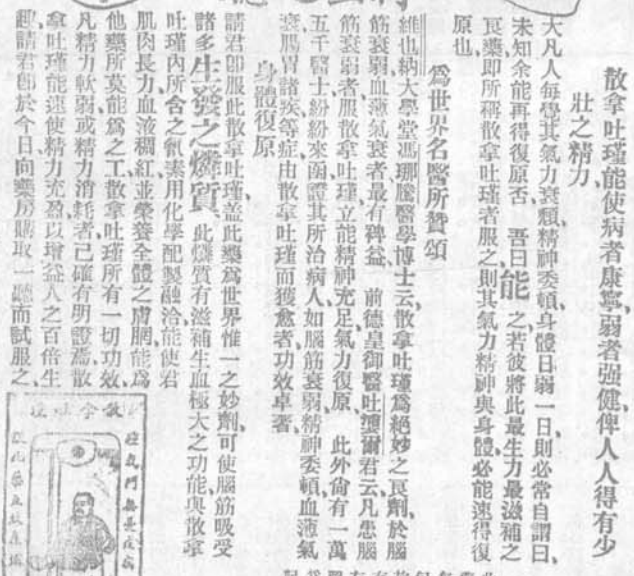 散拿吐瑾能使病者康寧弱者强健俾人人得有少
壯之精力
大凡人每覺其氣力衰頽精神委頓身體日弱一日則必常自謂曰、
未知余能再得復原否 吾曰能之若彼將此最生力最滋補之
良藥即所稱散拿吐瑾者服之則其氣力精神與身體必能速得復
原也
爲世界名醫所贊頌
維也納大學堂馮聊騰醫學博士云、散拿吐瑾爲絕妙之良劑、於腦
筋衰弱血薄氣衰者最有裨益 前德皇御醫吐爾君云、凡患腦
筋衰弱者服散拿吐瑾立能精神充足氣力復原 此外尙有一萬
五千醫士紛紛來函證其所治病人如腦筋衰弱精神委頓血薄氣
衰腸胃諸疾等症由散拿吐瑾而獲愈者功效卓著、
身體復原
請君卽服此散拿吐瑾、蓋此藥爲世界惟一之妙劑、可使腦筋吸受
諸多生發之燐質 此燐質有滋補生血極大之功能與散拿
吐瑾內所含之氣素用化學配製融洽能使君
肌肉長力血液稠紅並榮養全體之膚膶能爲
他藥所莫能爲之工散拿吐瑾所有一切功效、
凡精力軟弱或精力消耗者己確有明證焉散
拿吐瑾能速使精力充盈以增益人之百倍生
趣請君卽於今日向藥房購取一聽而試服之、